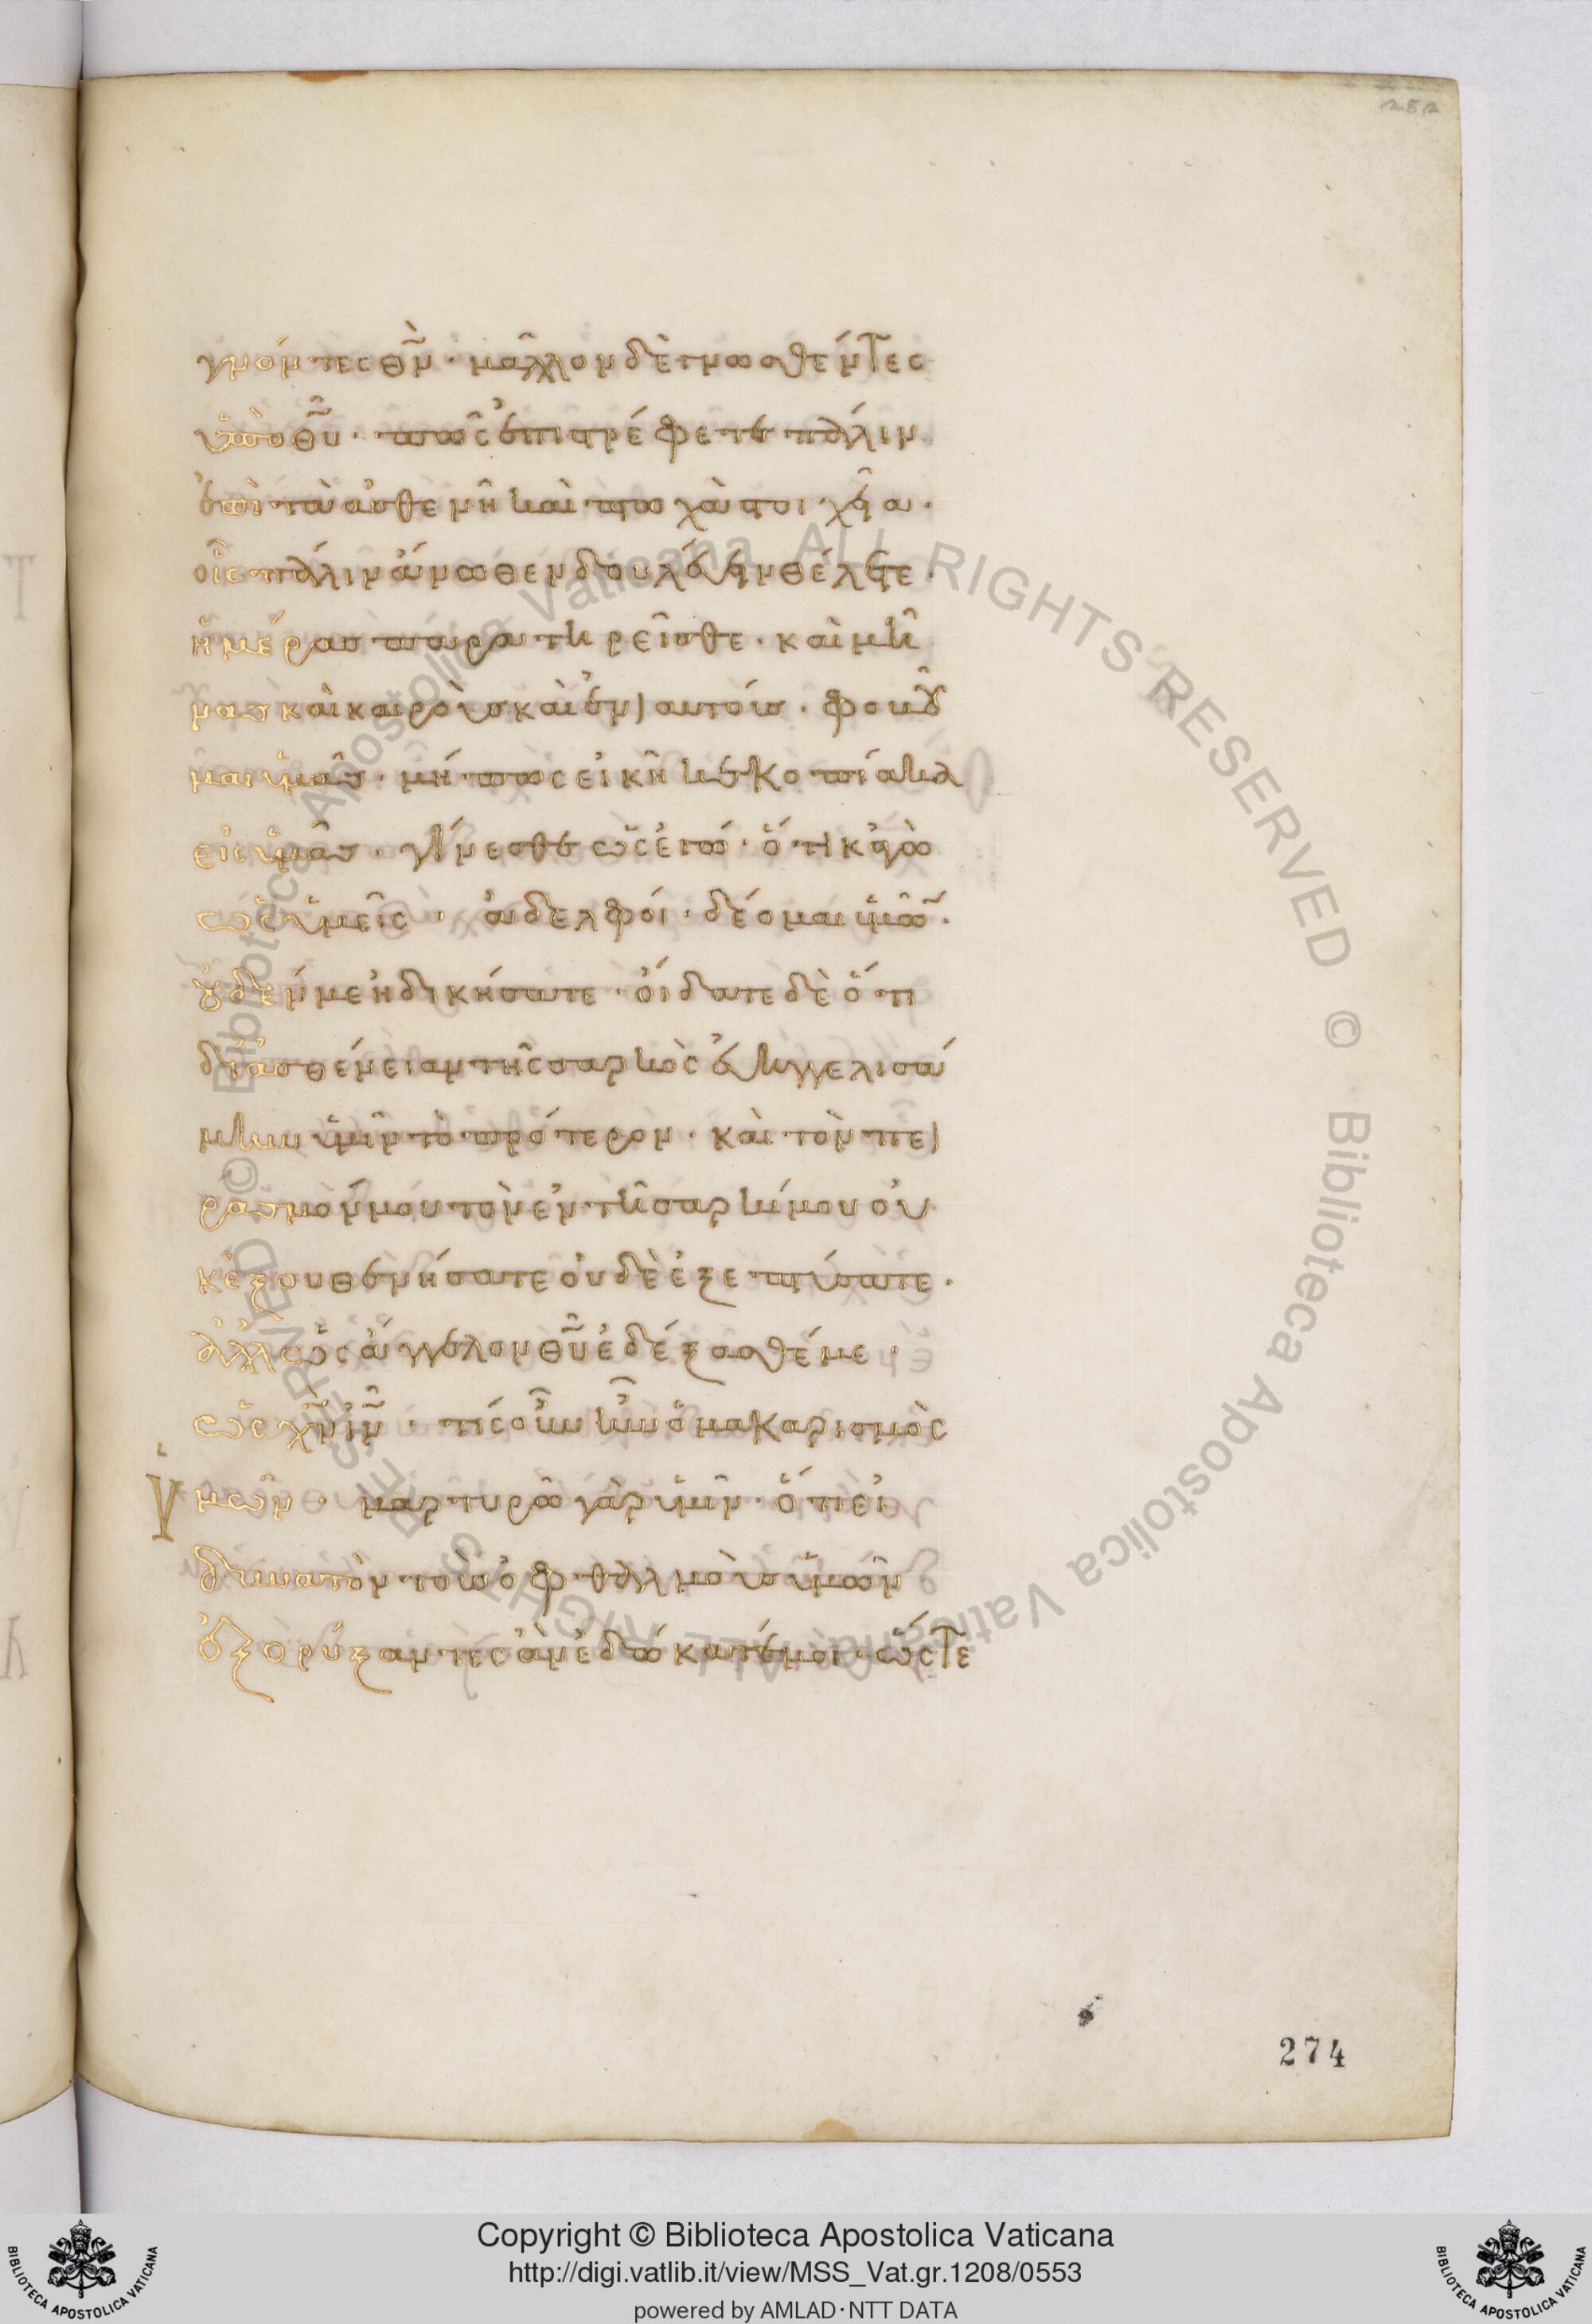 252
γνόντες θν̅· μᾶλλον δὲ γνωσθέντες
ὑπὸ θυ̅· πῶς ἐπιστρέφετε πάλιν
ἐπὶ τὰ ἀσθενῆ καὶ πτωχὰ στοιχεῖα·
οἷς πάλιν ἄνωθεν δουλεύειν θέλετε·
ἡμέρας παρατηρεῖσθε· καὶ μῆ
νας καὶ καιροὺς καὶ ἐνιαυτούς· φοβοῦ
μαι ὑμᾶς· μή πως εἰκῆ κεκοπίακα
εἰς ὑμᾶς· γίνεσθε ὡς ἐγώ· ὅτι κἀγὼ
ὡς ὑμεῖς· ἀδελφοί· δέομαι ὑμῶν·
οὐδέν με ἠδικήσατε· οἴδατε δὲ ὅτι
δι ἀσθένειαν τῆς σαρκὸς εὐηγγελισά
μην ὑμῖν τὸ πρότερον· καὶ τὸν πει
ρασμόν μου τὸν ἐν τῇ σαρκί μου οὐ
κ ἐξουθενήσατε οὐδὲ ἐξεπτύσατε·
ἀλλ ὡς ἄγγελον θυ̅ ἐδέξασθέ με·
ὡς χν̅ ιν̅· τίς οὖν ἦν ὁ μακαρισμὸς
ὑμῶν· μαρτυρῶ γὰρ ὑμῖν· ὅτι εἰ
δυνατὸν τοὺς ὀφθαλμοὺς ὑμῶν
ἐξορύξαντες ἂν ἐδώκατέ μοι· ὥστε
274
© Biblioteca Apostolica Vaticana ALL RIGHTS RESERVED © Biblioteca Apostolica Vaticana ALL RIGHTS RESERVED
Copyright © Biblioteca Apostolica Vaticana
http://digi.vatlib.it/view/MSS_Vat.gr.1208/0553
powered by AMLAD·NTT DATA
BIBLIOTECA APOSTOLICA VATICANA
BIBLIOTECA APOSTOLICA VATICANA